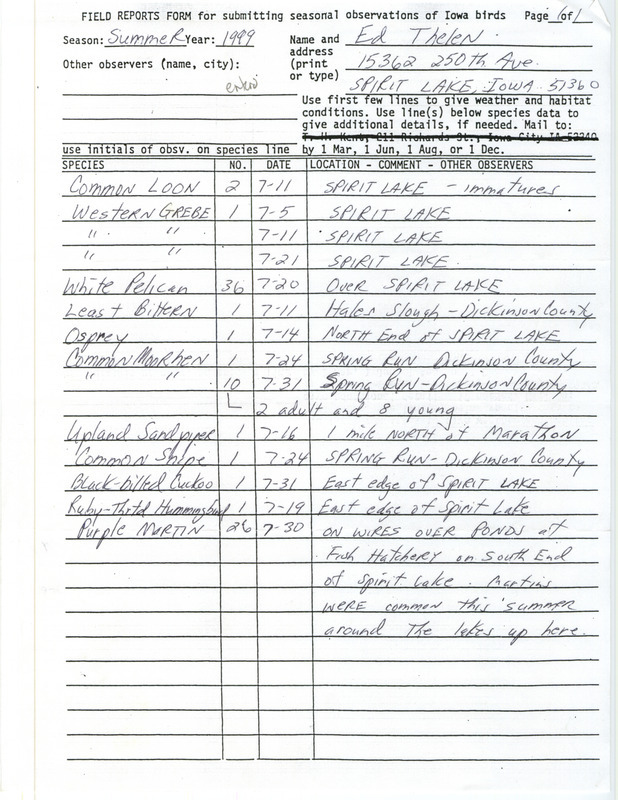 FIELD REPORTS FORM for submitting seasonal observations of Iowa birds Page 1 of 1
Season: Summer Year: 1999 Name and Ed Thelen
address 15362 250th Ave.
Other observers (name, city): (print
or type) SPIRIT LAKE, IOWA 51360
Use first few lines to give weather and habitat
conditions. Use line(s) below species data to
give additional details, if needed. Mail to:
T. H. Kent, 211 Richards St., Iowa City IA 52240
use initials of obsv. on species line by 1 Mar, 1 Jun, 1 Aug, or 1 Dec.
SPECIES NO. DATE LOCATION - COMMENT - OTHER OBSERVERS
Common Loon 2 7-11 SPIRIT LAKE - immatures
Western GREBE 1 7-5 SPIRIT LAKE
" " 7-11 SPIRIT LAKE
" " 7-21 SPIRIT LAKE
White Pelican 36 7-20 Over SPIRIT LAKE
Least Bittern 1 7-11 Hales Slough - Dickinson County
Osprey 1 7-14 NORTH End of SPIRIT LAKE
Common Moorhen 1 7-24 SPRING RUN Dickinson County
" " 10 7-31 Spring Run - Dickinson County
2 adult and 8 young
Upland Sandpiper 1 7-16 1 mile NORTH of Marathon
Common Snipe 1 7-24 SPRING RUN - Dickinson County
Black-billed Cuckoo 1 7-31 East edge of SPIRIT LAKE
Ruby-Thrtd Hummingbird 1 7-19 East edge of Spirit Lake
Purple MARTIN 26 7-30 ON WIRES OVER PONDS at
Fish Hatchery on South End
of Spirit Lake. Martins
WERE common this summer
around The lakes up here.